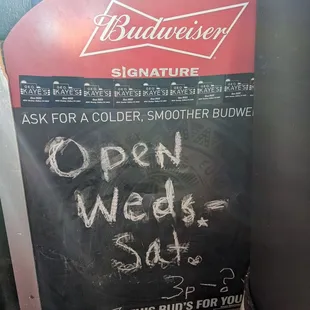 Budweiser
SIGNATURE
KAYE'S KAYE'S KAYE'S KAYE'S KAYE'S KAYE'S KAYE'S
ASK FOR A COLDER, SMOOTHER BUDWE
Open
Weds.-
Sat.
3p-?
BUD'S FOR YOU